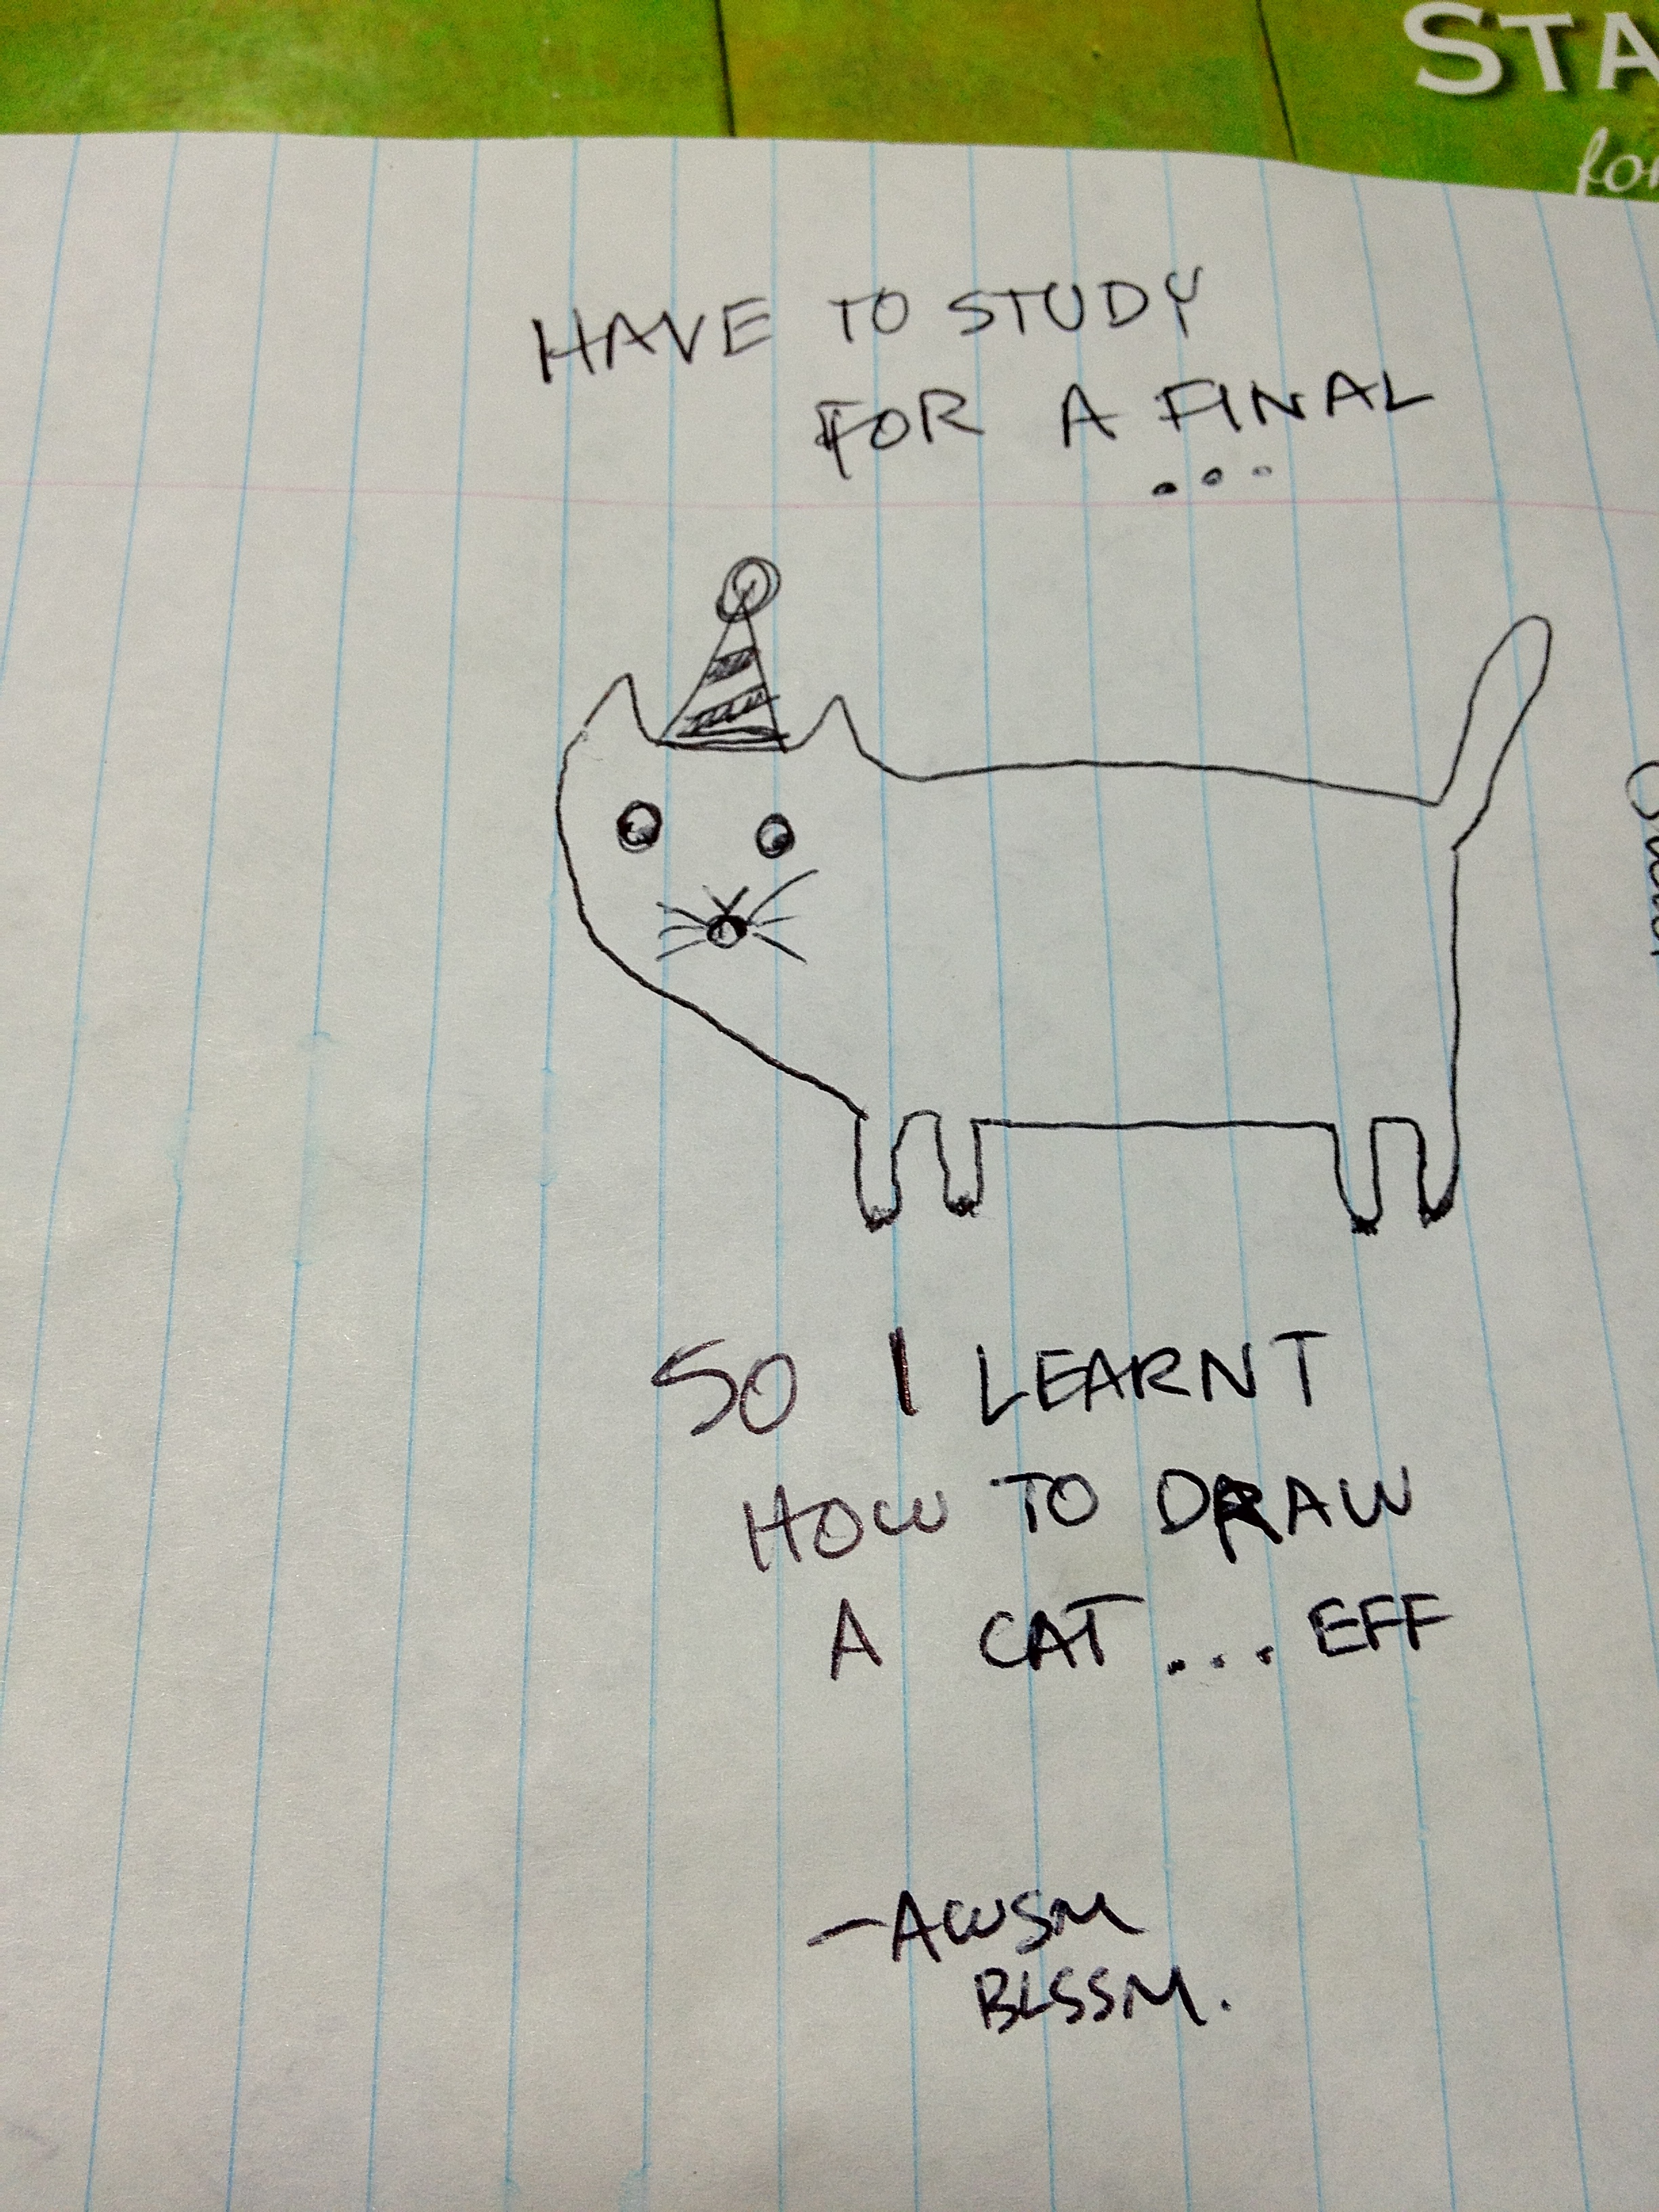 STA
for
HAVE TO STUDY
FOR A FINAL
...
SO I LEARNT
HOW TO DRAW
A CAT... EFF
-AWSM
BLSSM.